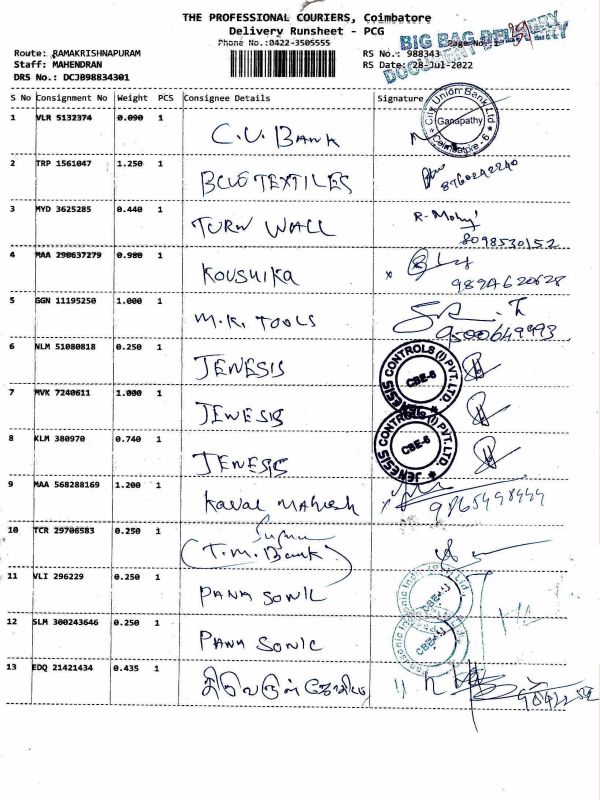 THE PROFESSIONAL COURIERS, Coimbatore
Delivery Runsheet - PCG
Phone No.:0422-3505555
BIG BAG DELIVERY
DOCUMENT DELIVERY
Route: RAMAKRISHNAPURAM
Staff: MAHENDRAN
DRS No.: DCJB98834301
RS No.: 988343
RS Date: 28-Jul-2022
S No Consignment No Weight PCS Consignee Details Signature
1 VLR 5132374 0.090 1 C.U. BANK
City Union Bank Ltd
Ganapathy
Coimbatore - 6
2 TRP 1561047 1.250 1 BLUE TEXTILES 8760242240
3 MYD 3625285 0.440 1 TURN WALL R-Mohy
8098530152
4 MAA 290637279 0.980 1 KOUSHIKA
989A620628
5 GGN 11195250 1.000 1 M.K. TOOLS
9500649993
6 NLM 51080818 0.250 1 JENESIS
JENESIS CONTROLS (I) PVT. LTD.
CBE-6
7 MVK 7240611 1.000 1 JENESIS
8 KLM 380970 0.740 1 JENESIS
JENESIS CONTROLS (I) PVT. LTD.
CBE-6
9 MAA 568288169 1.200 1 Kaval Mahesh
10 TCR 29706583 0.250 1 (T.M. Bank)
11 VLI 296229 0.250 1 PANA SONIC
12 SLM 300243646 0.250 1 PANA SONIC
13 EDQ 21421434 0.435 1